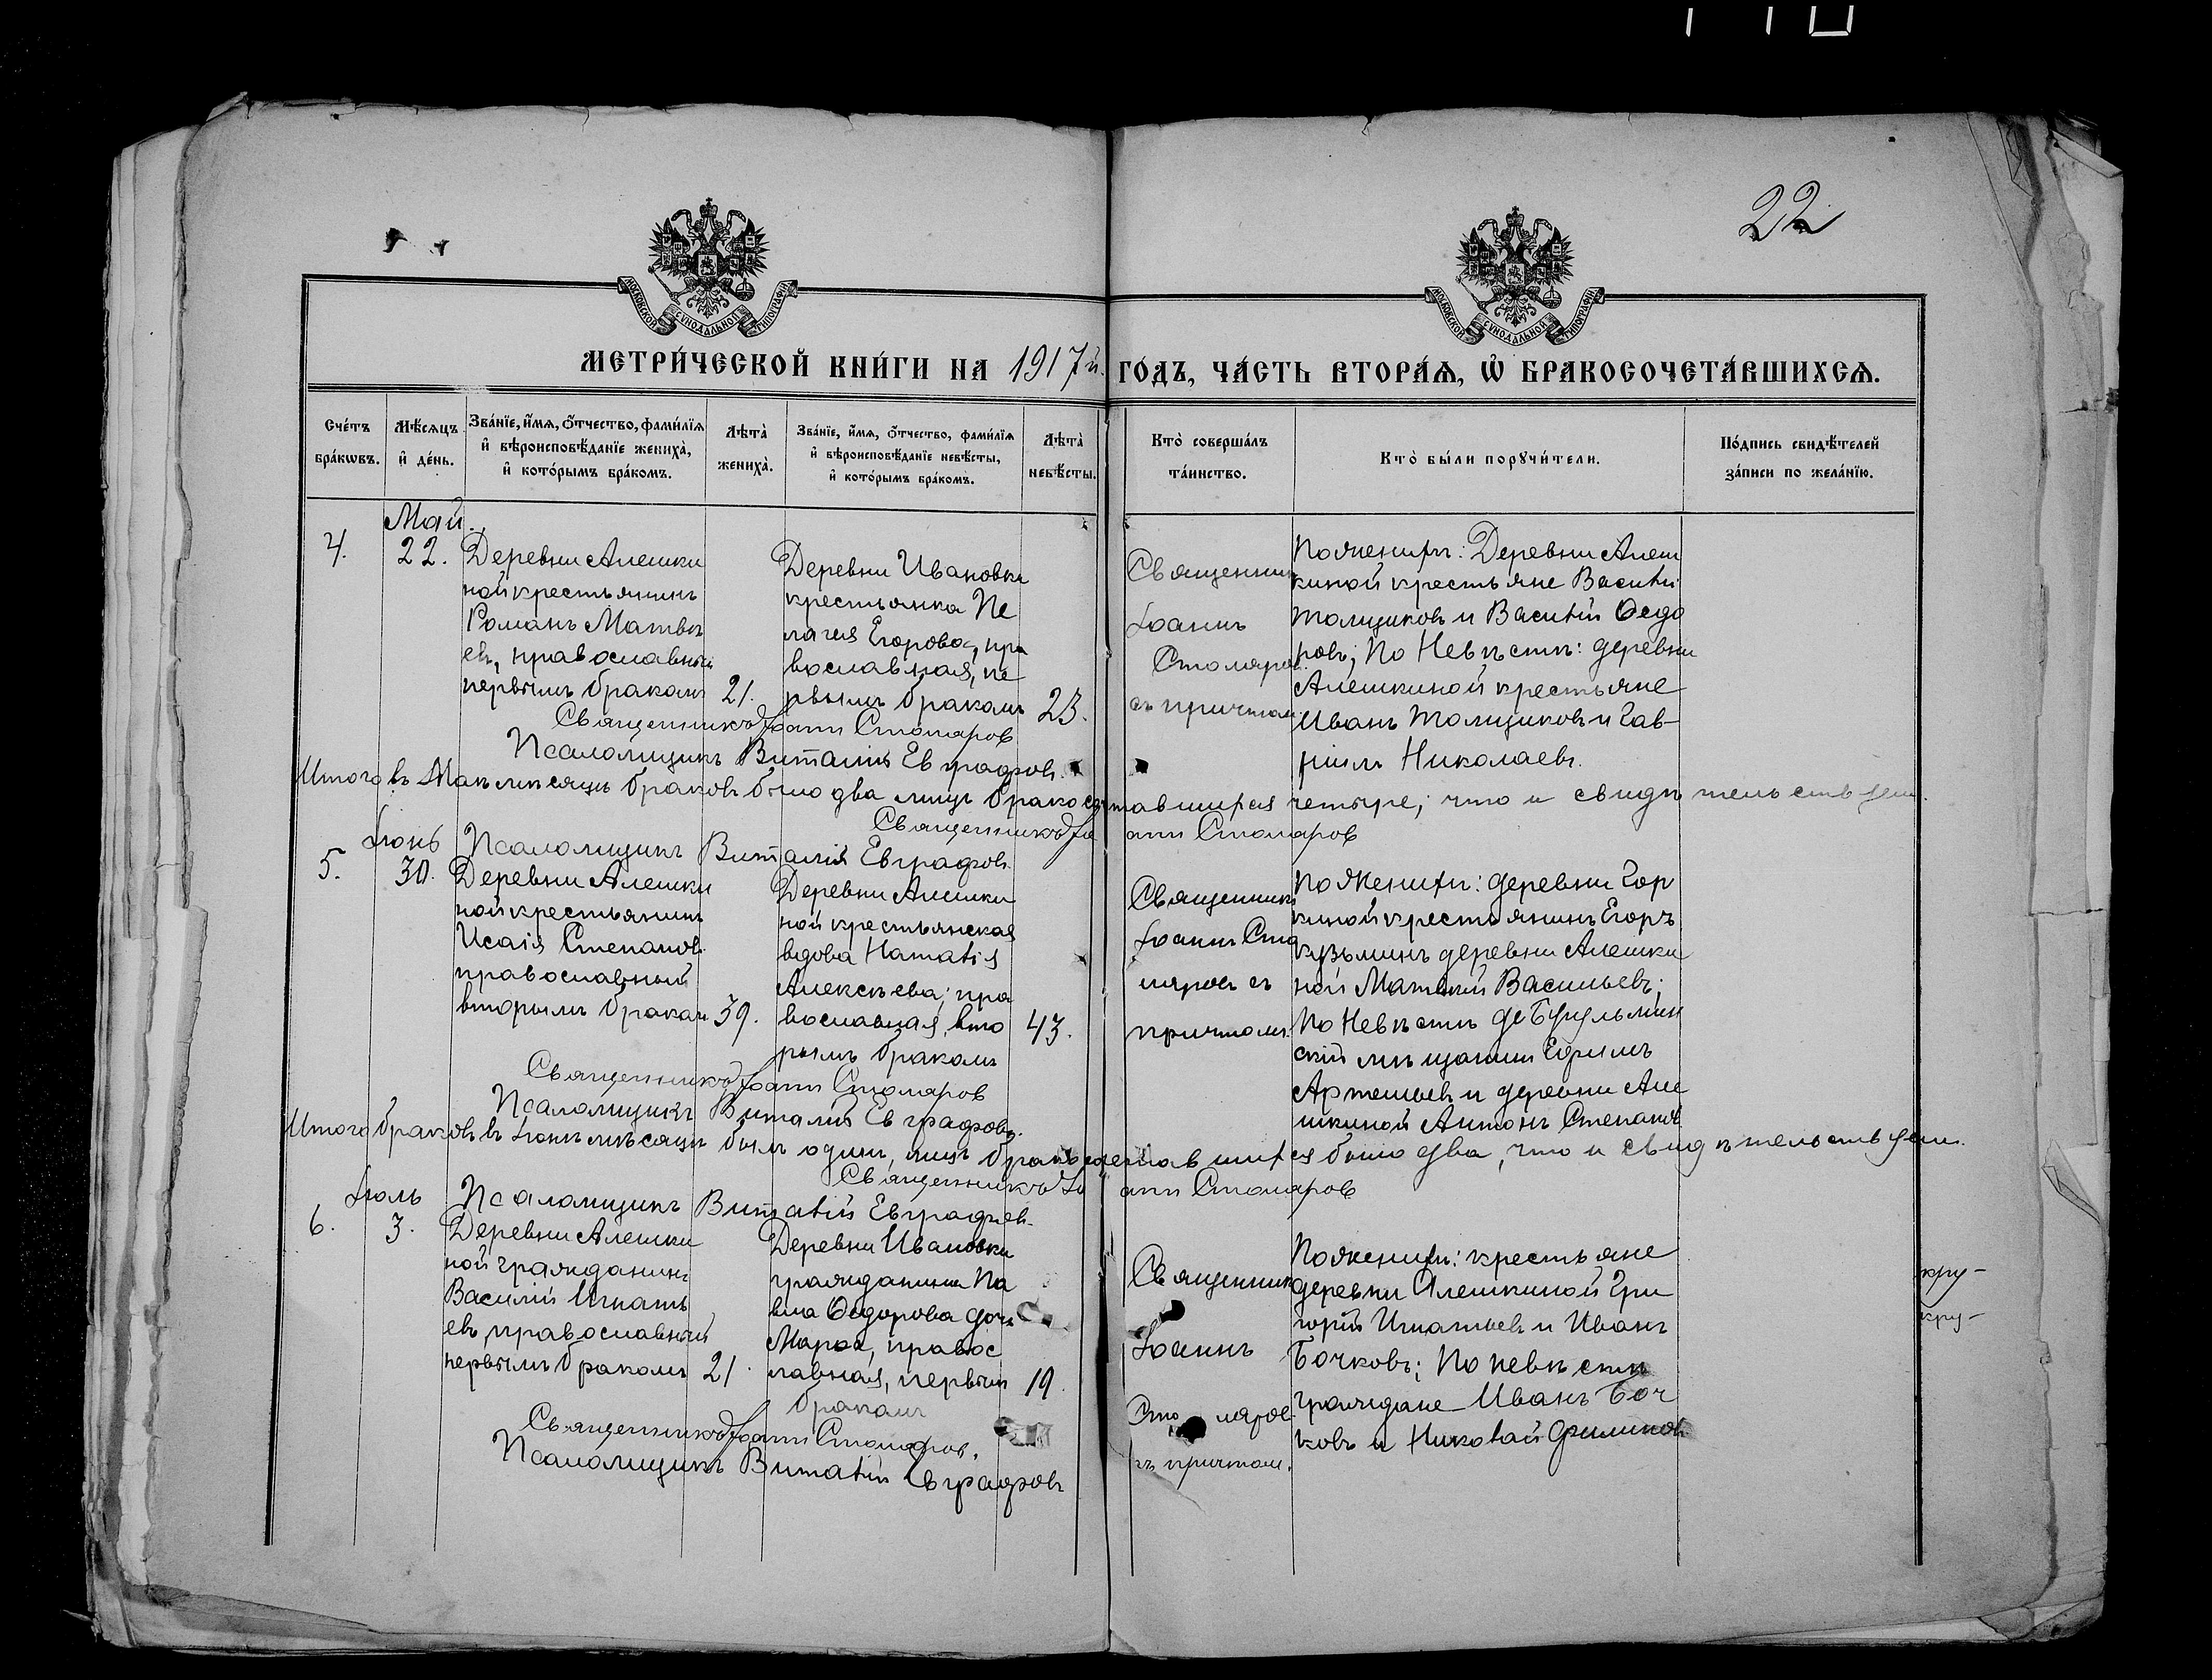 22
МОСКОВСКОЙ СУНОДАЛЬНОЙ ТИПОГРАФІИ
МОСКОВСКОЙ СУНОДАЛЬНОЙ ТИПОГРАФІИ
МЕТРИ́ЧЕСКОЙ КНИ́ГИ НА 1917й. ГО́ДЪ, ЧА́СТЬ ВТОРА́Ѧ, Ѡ҆ БРАКОСОЧЕТА́ВШИХСѦ.
Сче́тъ
бра́кѡвъ.
Мѣ́сяцъ
и҆ де́нь.
Зва́нїе, и҆́мѧ, ѻ҆́тчество, фами́лїѧ
и҆ вѣроисповѣ́данїе жениха̀,
и҆ кото́рымъ бра́комъ.
Лѣта̀
жениха̀.
Зва́нїе, и҆́мѧ, ѻ҆́тчество, фами́лїѧ
и҆ вѣроисповѣ́данїе невѣ́сты,
и҆ кото́рымъ бра́комъ.
Лѣта̀
невѣ́сты.
Кто̀ соверша́лъ
та́инство.
Кто̀ бы́ли порꙋчи́тели.
По́дпись свидѣ́телей
за́писи по жела́нїю.
Май.
4.
22.
Деревни Алешки
ной крестьянинъ
Романъ Матвѣ
евъ, православный
первымъ бракомъ
21.
Деревни Ивановки
крестьянка Пе
лагея Егорова, пра
вославная, пе
рвымъ бракомъ
23.
Священникъ
Іоаннъ
Столяров
съ причтом
По Женихѣ: Деревни Алеш
киной крестьяне Василій
Толщиковъ и Василій Ѳедо
ровъ; По Невѣстѣ: деревни
Алешкиной крестьяне
Иванъ Толщиковъ и Гав-
ріилъ Николаевъ.
Священникъ Іоаннъ Столяров
Псаломщикъ Виталій Евграфовъ.
Итого въ Маѣ мѣсяцѣ браковъ было два лицъ бракосочетавшихся четыре; что и свидѣтельствуем.
Священникъ Іоаннъ Столяров
Псаломщикъ Виталій Евграфовъ
Іюнь
5.
30.
Деревни Алешки
ной крестьянинъ
Исаія Степанов
православный
вторымъ бракам
39.
Деревни Алешки
ной крестьянская
вдова Наталія
Алексѣева; пра
вославная, вто
рымъ бракомъ
43.
Священникъ
Іоаннъ Сто
ляровъ съ
причтомъ.
По Женихѣ: деревни Гор
киной крестьянинъ Егоръ
Кузьминъ деревни Алешки
ной Матвій Васильевъ;
По Невѣстѣ Бугульмин
скій мѣщанинъ Ефимъ
Артемьевъ и деревни Але
шкиной Антонъ Степановъ
Священникъ Іоаннъ Столяров
Псаломщикъ Виталій Евграфовъ.
Итого браковъ въ Іюнѣ мѣсяцѣ былъ одинъ, лицъ бракосочетавшихся было два, что и свидѣтельствуем.
Священникъ Іоаннъ Столяров
Псаломщикъ Виталій Евграфовъ
Іюль
6.
3.
Деревни Алешки
ной гражданинъ
Василій Игнать
евъ, православный
первымъ бракомъ
21.
Деревни Ивановки
гражданина Па
вла Ѳедорова дочь
Марѳа, правос
лавная, первым
бракомъ
19.
Священникъ
Іоаннъ
Столяров
съ причтом.
По Женихѣ: крестьяне
деревни Алешкиной Гри
горій Игнатьевъ и Иванъ
Бочковъ; По невѣстѣ
граждане Иванъ Боч
ковъ и Николай Филиповъ
Священникъ Іоаннъ Столяров.
Псаломщикъ Виталій Евграфовъ
кру-
кру-